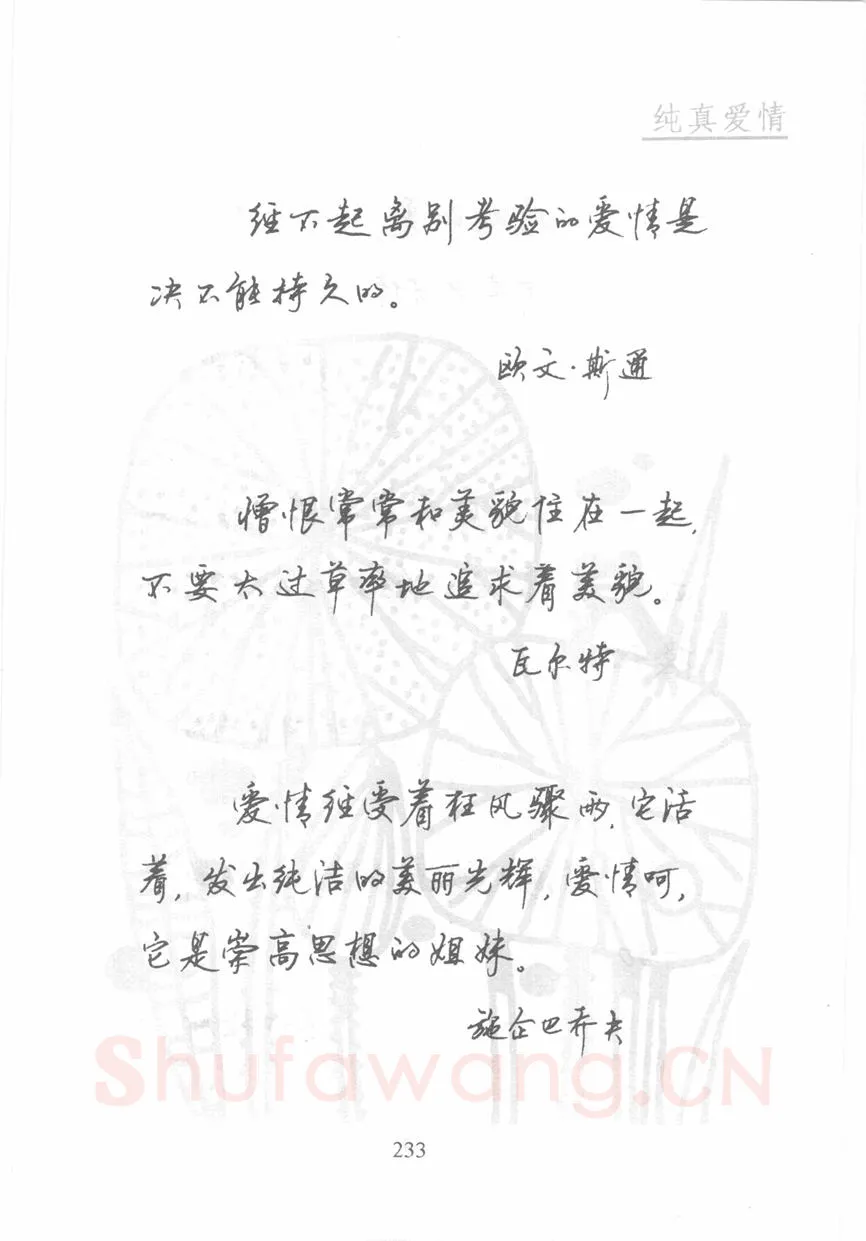 纯真爱情
经不起离别考验的爱情是
决不能持久的。
欧文·斯通
憎恨常常和美貌住在一起,
不要太过草率地追求着美貌。
瓦尔特
爱情经受着狂风骤雨,它活
着,发出纯洁的美丽光辉,爱情呵,
它是崇高思想的姐妹。
施企巴乔夫
Shufawang.CN
233